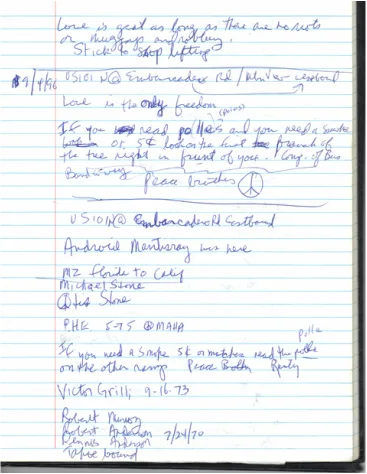 Love is great as long as there are no
or muggings and robbery.
Stick to shop lifting
9/4/96 US101 N@ Embarcadero Rd / westbound
Love is the only freedom
If you read and you need a smoke
or 5¢ look on the first branch of
the tree right in front of you.
Peace brothers
US101N@ Embarcadero Rd Eastbound
Android was here
MZ Florida to Calif
Michael Stone
Stone
PHE 5-75 OMAHA
polle
If you need a smoke 5¢ or matches read the polle
on the other ramp Peace
Victor Grill, 9-16-73
Robert
Robert Anderson 7/24/70
Dennis Anderson
bound